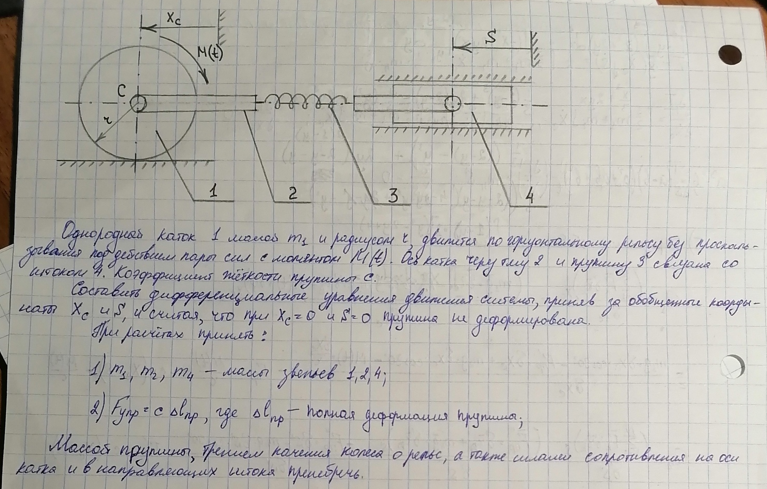 Xc
S
M(t)
C
r
1 2 3 4
Однородный каток 1 массой m₁ и радиусом r движется по горизонтальному рельсу без проскаль-
зывания под действием пары сил с моментом M(t). Ось катка через тягу 2 и пружину 3 связана со
штоком 4. Коэффициент жёсткости пружины C.
Составить дифференциальные уравнения движения системы, приняв за обобщенные коорди-
наты Xc и S, и считая, что при Xc=0 и S=0 пружина не деформирована.
При расчётах принять:
1) m₁, m₂, m₄ – массы звеньев 1,2,4;
2) Fупр = c Δlпр, где Δlпр – полная деформация пружины;
Массой пружины, трением качения колеса о рельс, а также силами сопротивления на оси
катка и в направляющих штока пренебречь.